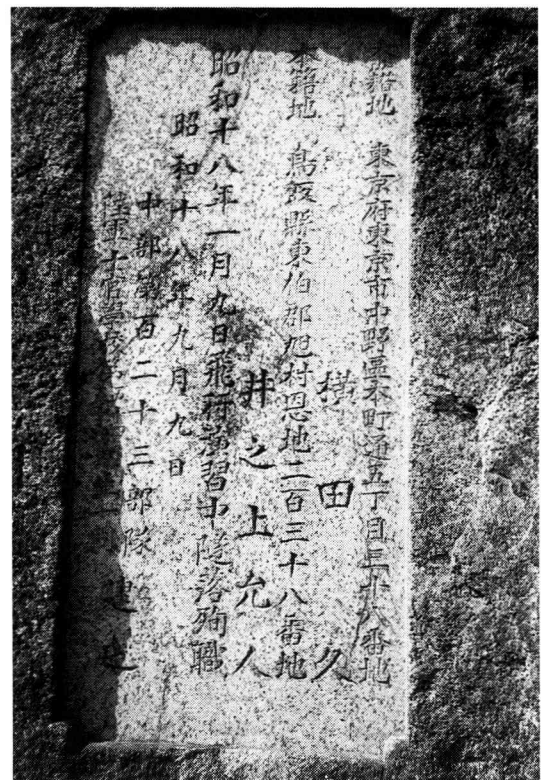 本籍地 東京府東京市中野區本町通五丁目三十八番地
横田久
本籍地 鳥取縣東伯郡旭村恩地二百三十八番地
井之上允人
昭和十八年一月九日飛行演習中墜落殉職
昭和十八年九月九日
中部第百二十三部隊
陸軍士官學校 建之